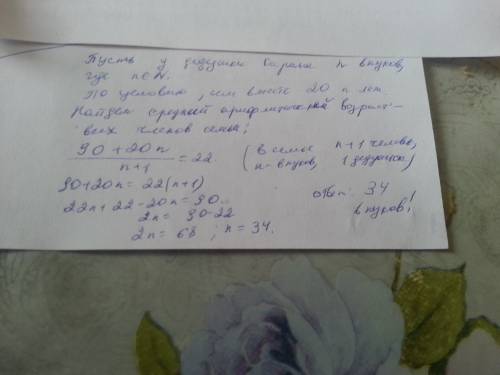 Пусть у дедушки было n внуков,
где n∈N.
По условию, им вместе 20 n лет.
Найдём средний арифметический возраст
всех членов семьи:
90 + 20n / n+1 = 22. (в семье n+1 человек,
n - внуков, 1 дедушка)
90 + 20n = 22(n+1)
22n + 22 - 20n = 90. ответ: 34
2n = 90 - 22 внуков!
2n = 68 ; n = 34.